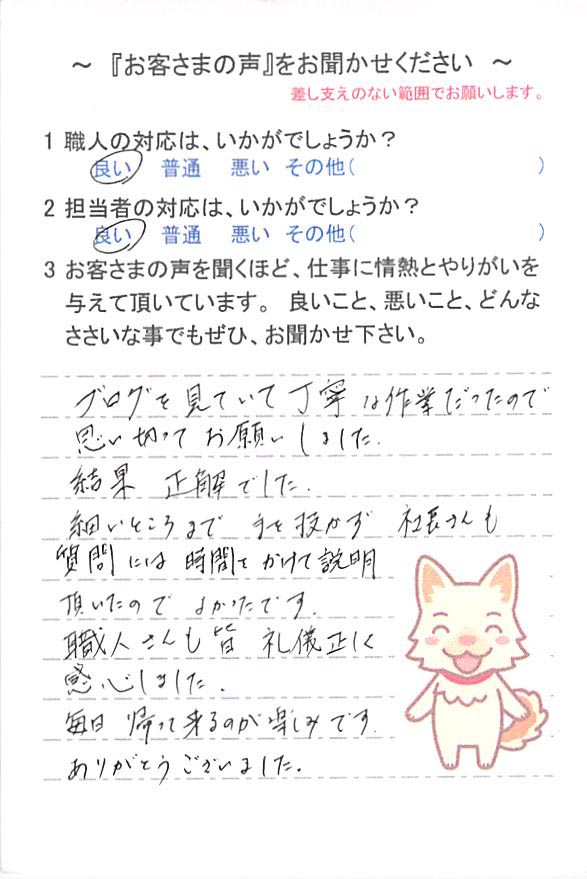 ～『お客さまの声』をお聞かせください ～
差し支えのない範囲でお願いします。
1 職人の対応は、いかがでしょうか？
良い 普通 悪い その他( )
2 担当者の対応は、いかがでしょうか？
良い 普通 悪い その他( )
3 お客さまの声を聞くほど、仕事に情熱とやりがいを
与えて頂いています。 良いこと、悪いこと、どんな
ささいな事でもぜひ、お聞かせ下さい。
ブログを見ていて丁寧な作業だったので
思い切ってお願いしました。
結果 正解でした。
細いところまで 手を抜かず 社長さんも
質問には時間をかけて説明
頂いたので よかったです。
職人さんも皆 礼儀正しく
感心しました。
毎日 帰って来るのが楽しみです
ありがとうございました。